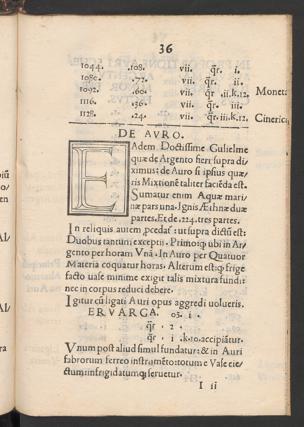 36
1044. .108. vii. qr. i.
1080. .72. vii. qr. ii.
1092. .60. vii. qr .ii.k.12. Monet:
1116. .36. vii. qr. iii.
1128. .24. vii. qr.iii.k.12. Cineric
DE AVRO.
EAdem Doctissime Gulielme
quæ de Argento fieri supra di
ximus: de Auro si ipsius quæ
ris Mixtionē taliter faciēda est.
Sumatur enim Aquæ mari/
næ pars una. Ignis Æthnæ duæ
partes. Et de .224. tres partes.
In reliquis autem ,pcedas: ut supra dictū est:
Duobus tantum exceptis . Primoq; ubi in Ar/
gento per horam Vnā . In Auro per Quatuor
Materia coquatur horas. Alterum est: q frige
facto uase minime exigit talis mixtura fundi:
nec in corpus reduci debere.
Igitur cū ligati Auri opus aggredi uolueris.
ERVARGA. 03. i .
qr . 2 .
qr . i .k.10.accipiātur.
Vnum post aliud simul fundatur: & in Auri
fabrorum ferreo instrumēto: totum e Vase eie/
ctum: infrigidatumq; seruetur.
I ii